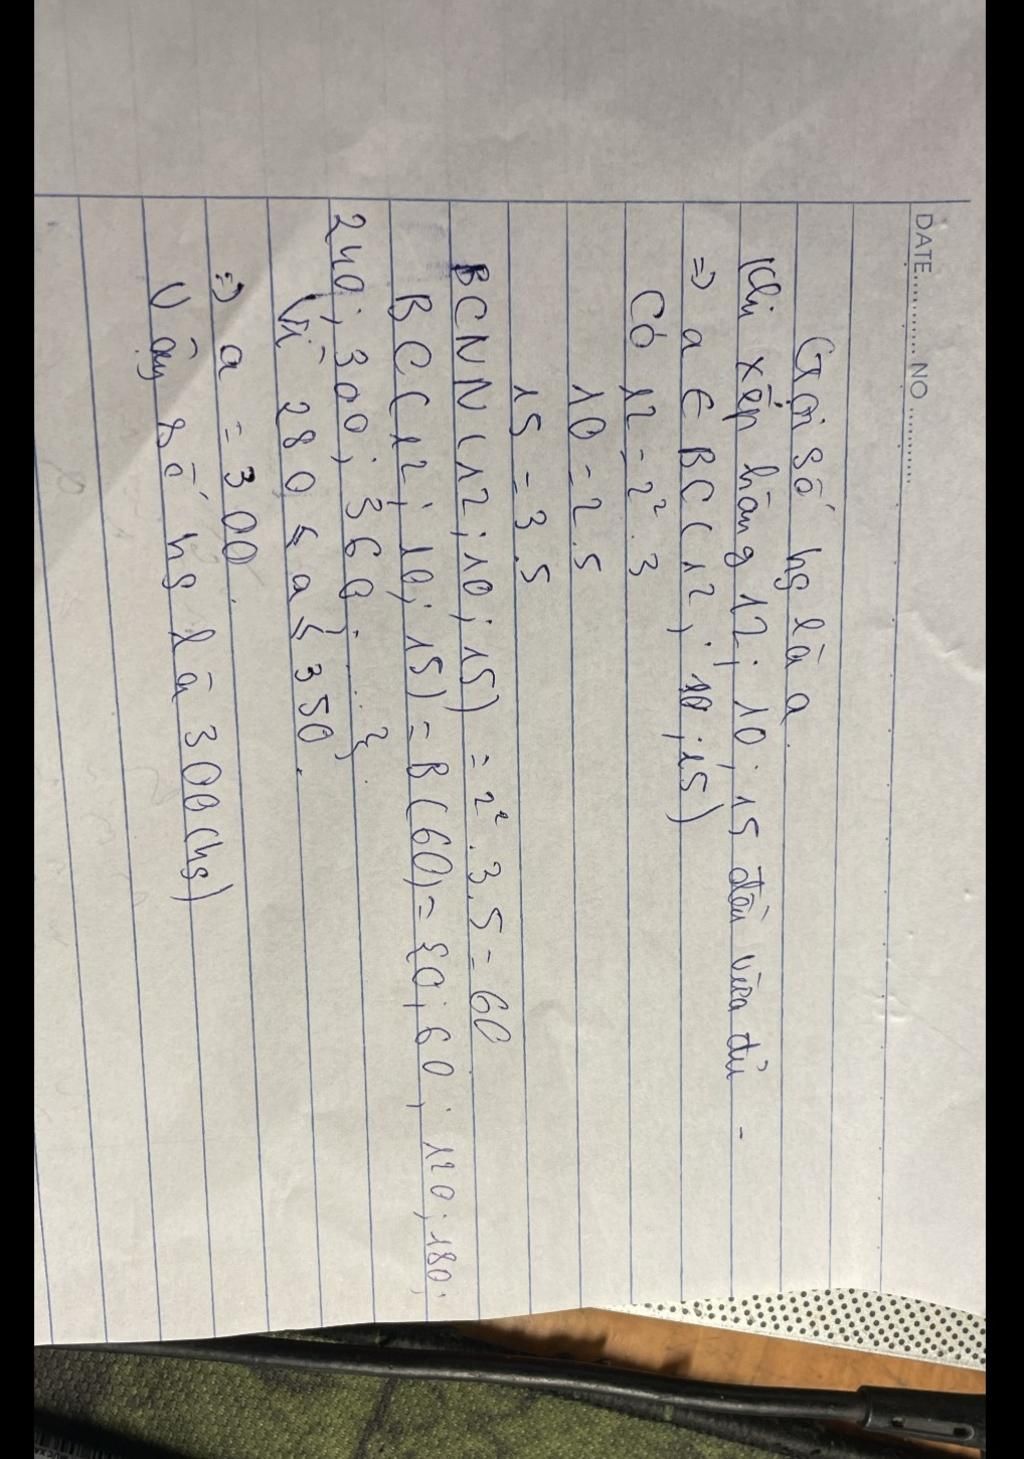 DATE............ NO ............
Gọi số hs là a.
Khi xếp hàng 12; 10; 15 đều vừa đủ -
=> a ∈ BC(12; 10; 15)
Có 12 = 2². 3
10 = 2.5
15 = 3.5
BCNN(12; 10; 15) = 2². 3. 5 = 60
BC(12; 10; 15) = B(60) = {0; 60; 120; 180;
240; 300; 360; ...}.
Vì 280 ≤ a ≤ 350.
=> a = 300.
Vậy số hs là 300(hs)